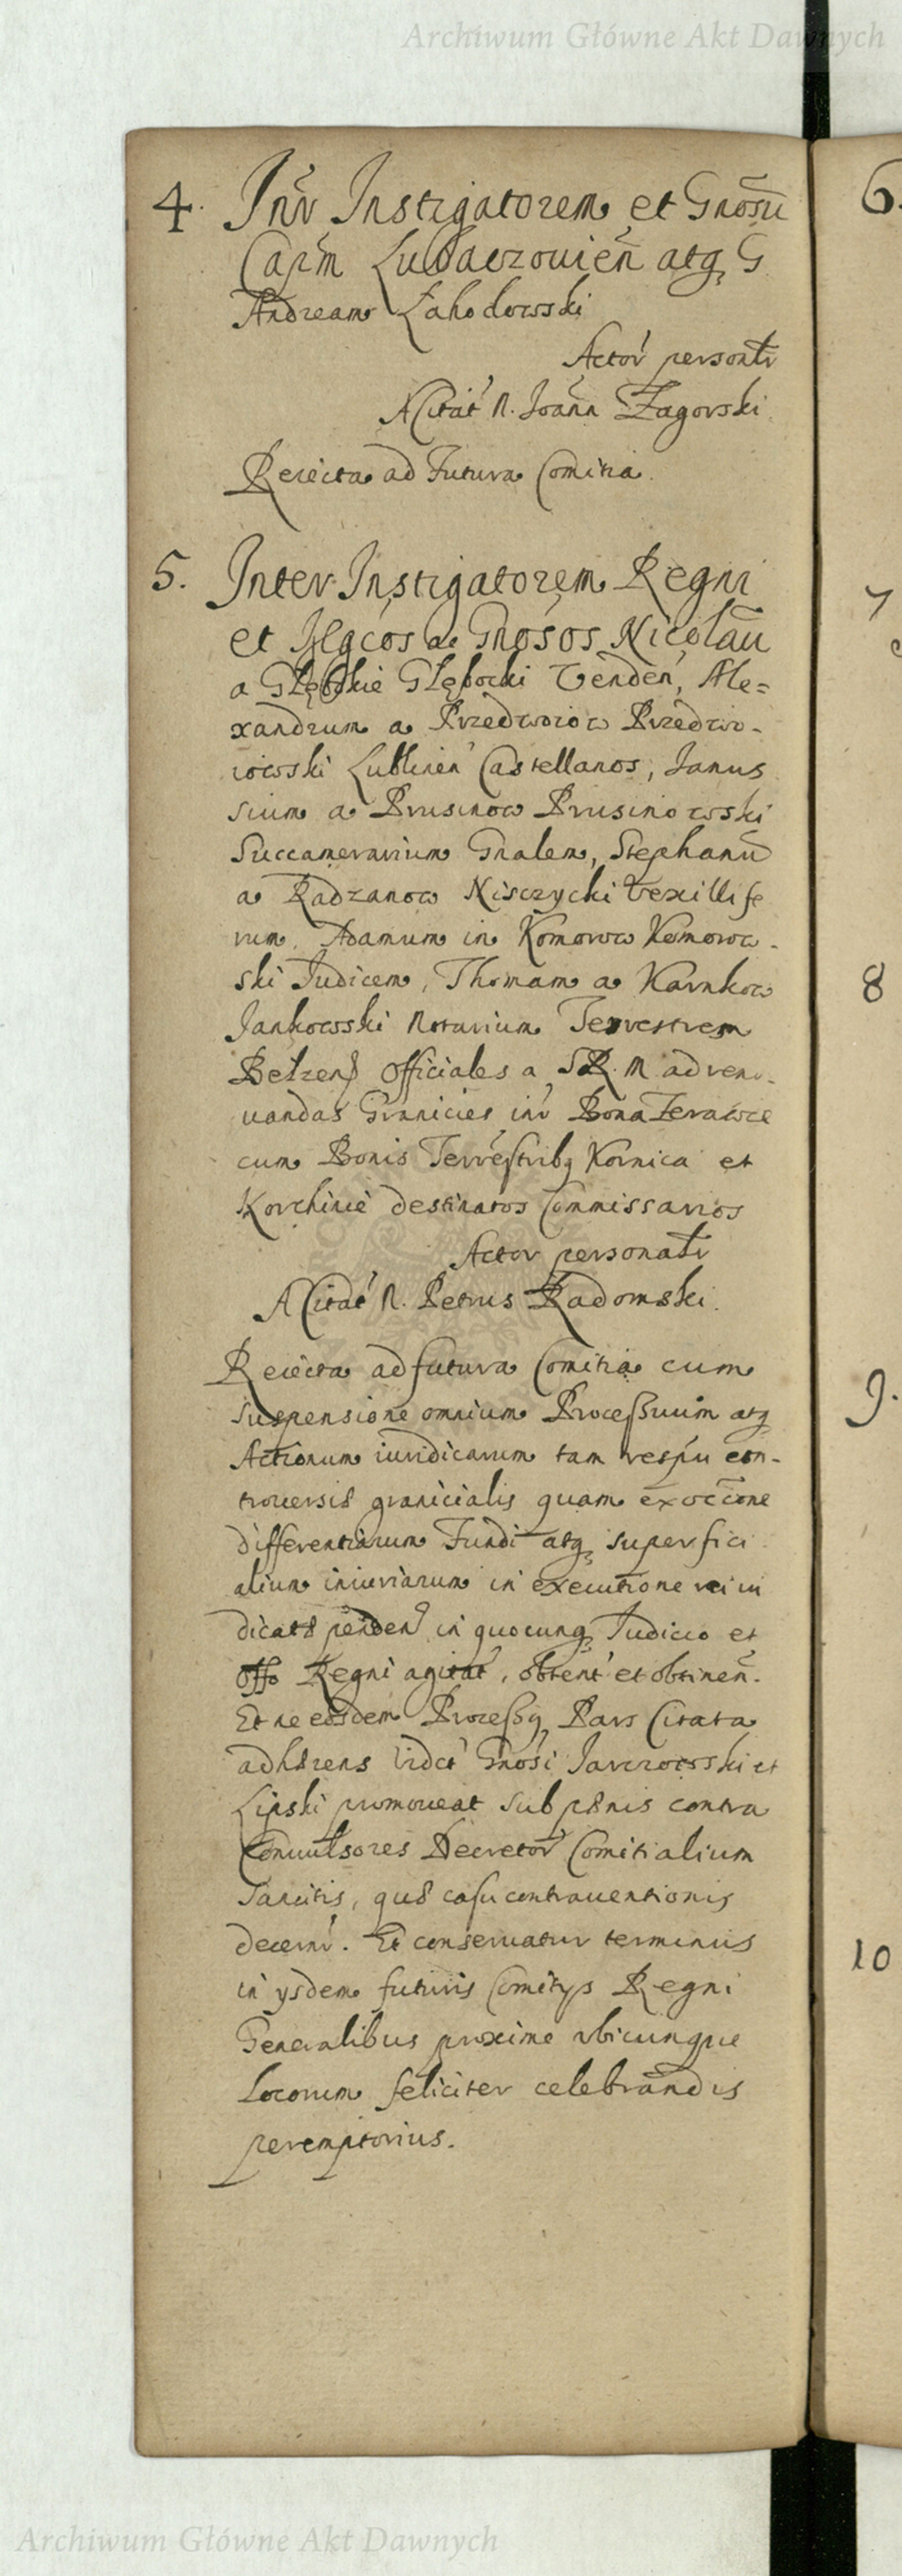 Archiwum Główne Akt Dawnych
4. Inr̃ Instigatorem et Gnosũ
Capm̃ Lubaczouien̄ atq₃ G
Andream Łahodowski
Actor' personalr̃
A Citat' N. Joãnn Zagorski
Reiecta ad Futura Comitia.
5. Inter Instigatorem Regni
et Mgcos ac Gnosos Nicolaũ
a Głębokie Głębocki Venden', Ale=
xandrum a Przedwoiow Przedwo-
iowski Lublinen' Castellanos, Janus
sium a Prusinow Prusinowski
Succamerarium Gnalem, Stephanũ
a Radzanow Nisczycki Vexillife
rum, Adamum in Komorow Komorow-
ski Judicem, Thomam a Karnkow
Jankowski Notarium Terrestrem
Belzens Officiales a S R. M ad reno-
uandas Granicies inr̃ Bona Terawce
cum Bonis Terrestribq Kornica et
Korchinie destinatos Commissarios
Actor personalr̃
A Citat' N. Petrus Radomski.
Reiecta ad futura Comitia cum
suspensione omnium Processuum atq₃
Actionum iuridicarum tam respu con-
trouersis granicialis quam
differentiarum Fundi atq₃ superfici
alium iniuriarum in executione rei iu
dicatæ penden' in quocunq₃ Judicio et
Offo Regni agitat', obtent' et obtinen̄.
Et ne eosdem Processq Pars Citata
adhærens vidct' Gnosi Jarczowski et
Lipski promoueat sub pænis contra
Conuulsores Decretor' Comitialium
sancitis, quæ casu contrauentionis
decerni'. Et conseruatur terminus
in ysdem futuris Comitys Regni
Generalibus proxime vbicunque
locorum feliciter celebrandis
peremptorius.
6.
7
8
9.
10
Archiwum Główne Akt Dawnych